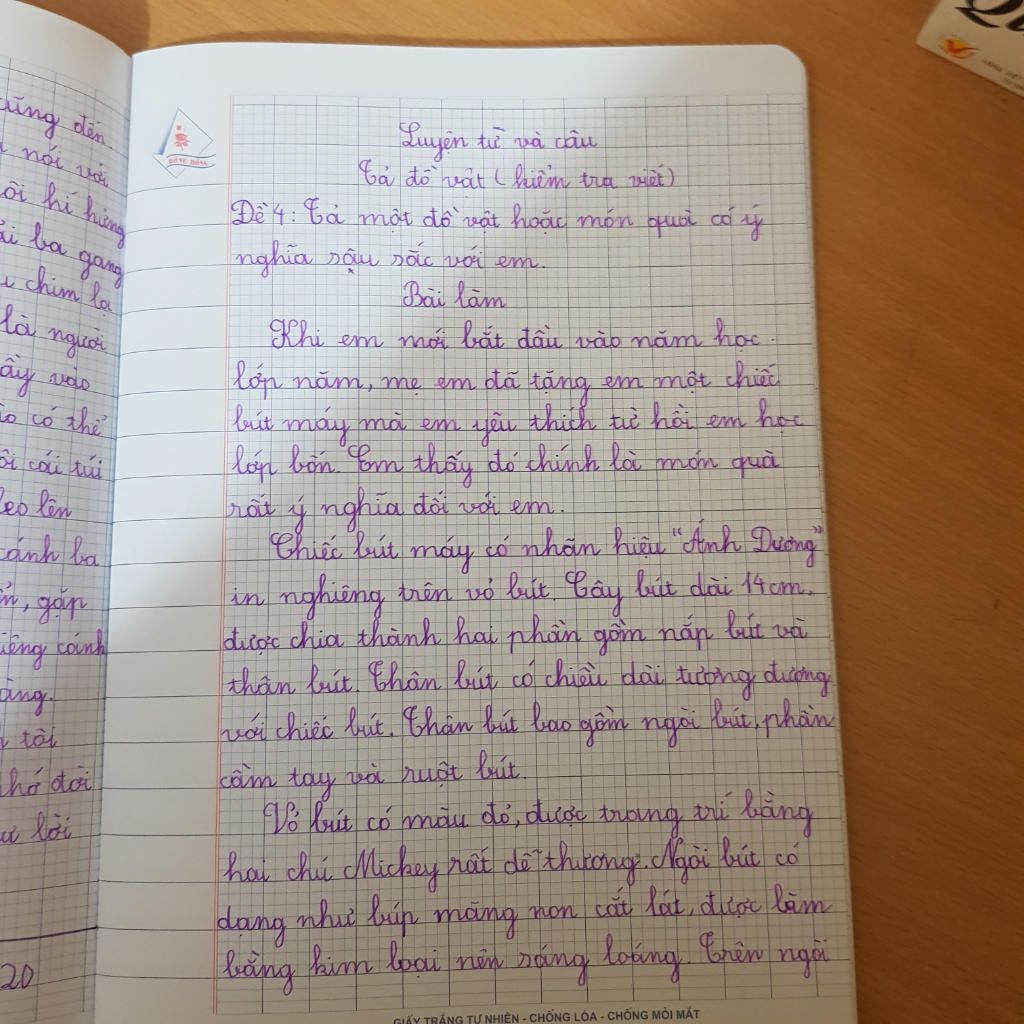 ũng đến
nói với
ôi hí hửng
ba gang
chim lạ
là người
ầy vào
có thể
ôi cái túi
eo lên
cánh ba
, gặp
iêng cánh
àng.
tôi
hó đòi
lời
20
BÔNG HỒNG
Luyện từ và câu
Tả đồ vật (kiểm tra viết)
Đề 4: Tả một đồ vật hoặc món quà có ý
nghĩa sâu sắc với em.
Bài làm
Khi em mới bắt đầu vào năm học
lớp năm, mẹ em đã tặng em một chiếc
bút máy mà em yêu thích từ hồi em học
lớp bốn. Em thấy đó chính là món quà
rất ý nghĩa đối với em.
Chiếc bút máy có nhãn hiệu "Ánh Dương"
in nghiêng trên vỏ bút. Cây bút dài 14cm,
được chia thành hai phần gồm nắp bút và
thân bút. Thân bút có chiều dài tương đương
với chiếc bút. Thân bút bao gồm ngòi bút, phần
cầm tay và ruột bút.
Vỏ bút có màu đỏ, được trang trí bằng
hai chú Mickey rất dễ thương. Ngòi bút có
dạng như búp măng non cắt lát, được làm
bằng kim loại nên sáng loáng. Trên ngòi
GIẤY TRẮNG TỰ NHIÊN - CHỐNG LÓA - CHỐNG MỎI MẮT